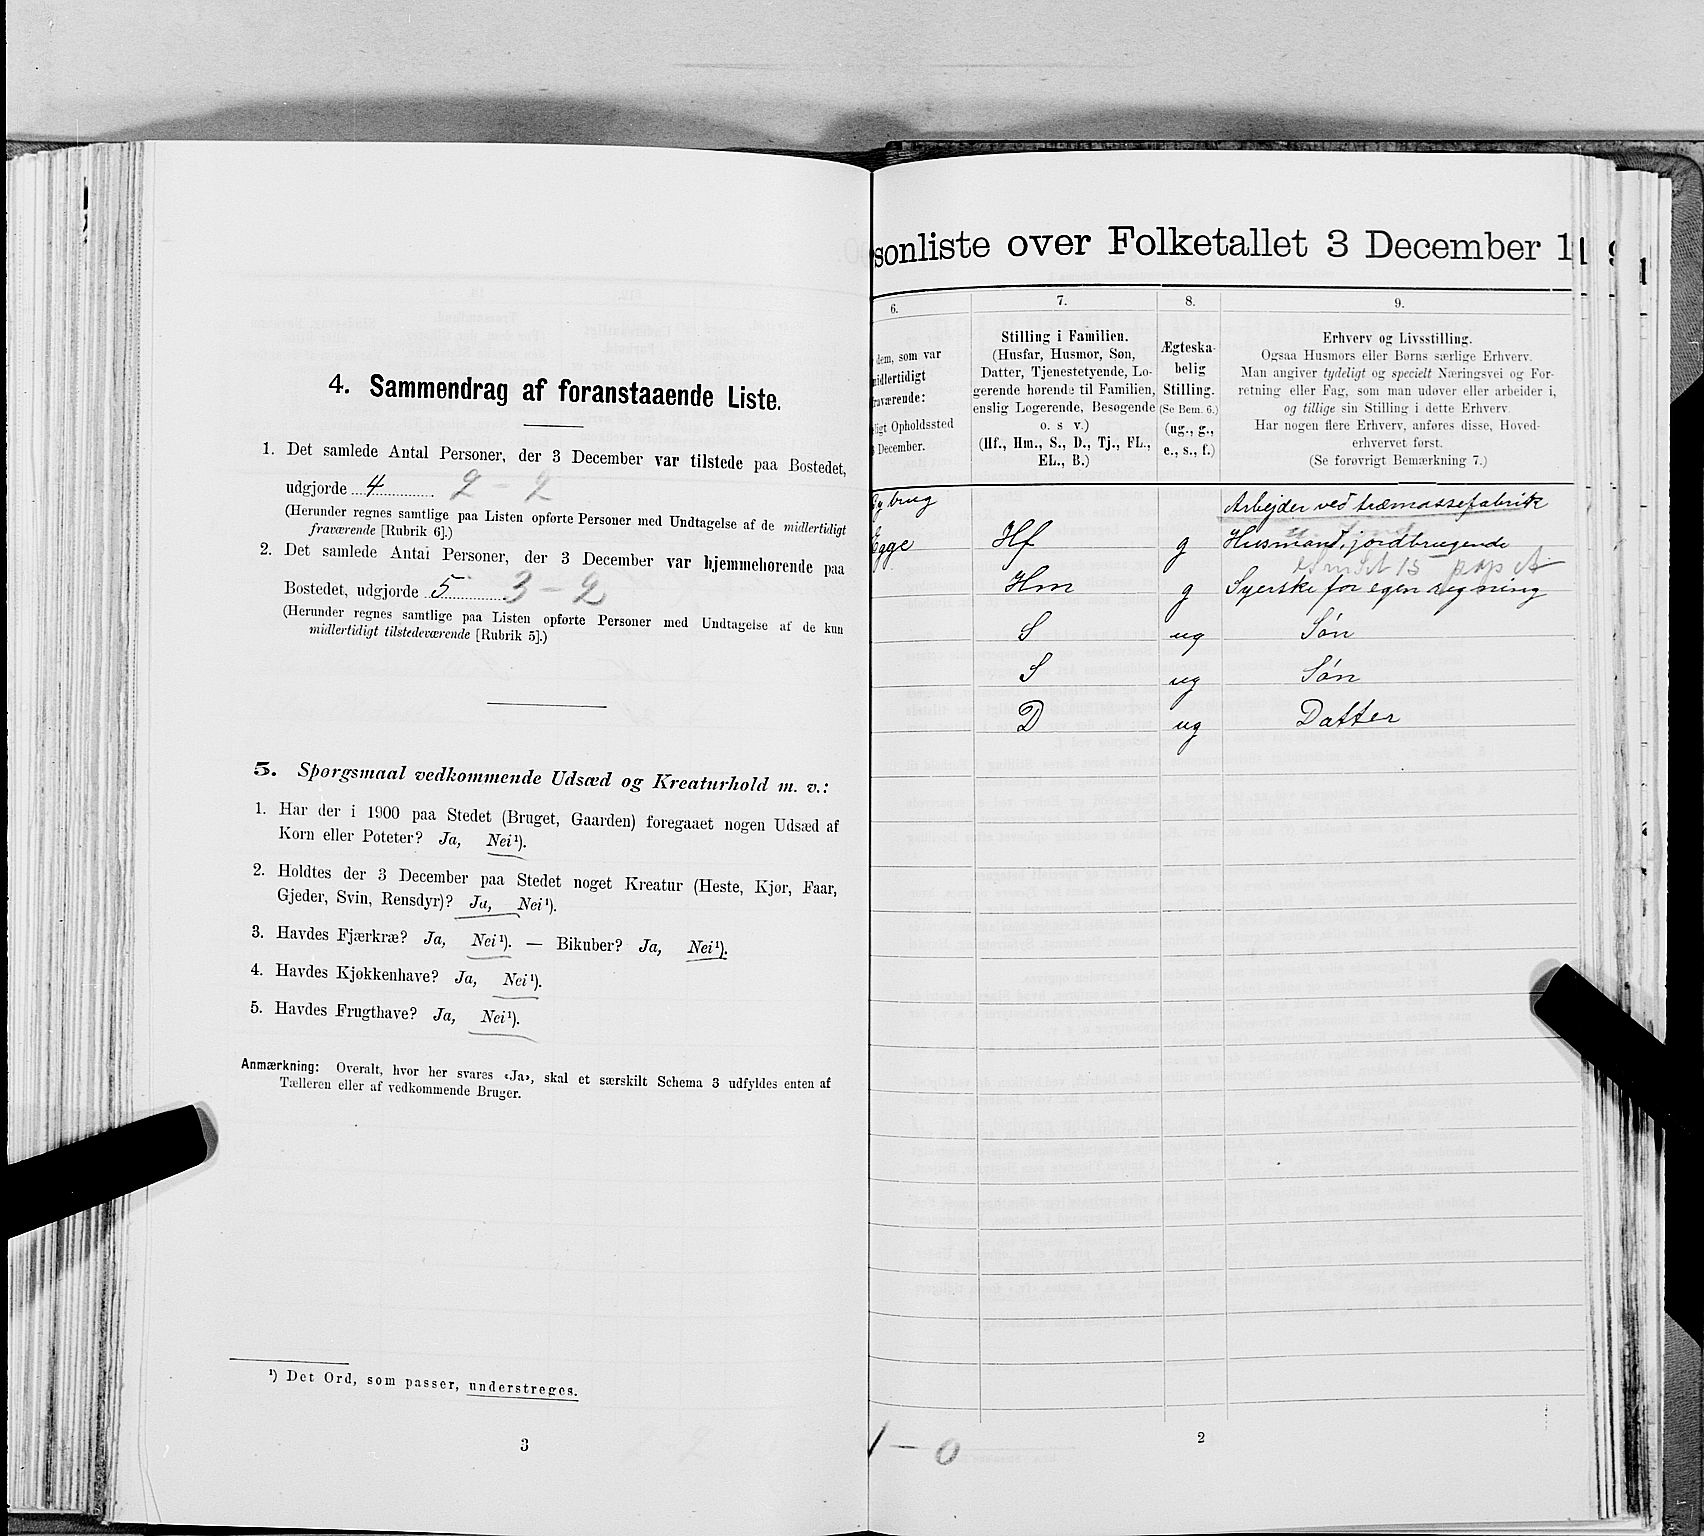 4. Sammendrag af foranstaaende Liste.
1. Det samlede Antal Personer, der 3 December var tilstede paa Bostedet,
udgjorde 4 2 - 2
(Herunder regnes samtlige paa Listen opførte Personer med Undtagelse af de midlertidigt
fraværende [Rubrik 6].)
2. Det samlede Antal Personer, der 3 December var hjemmehørende paa
Bostedet, udgjorde 5 3 - 2
(Herunder regnes samtlige paa Listen opførte Personer med Undtagelse af de kun
midlertidigt tilstedeværende [Rubrik 5].)
5. Spørgsmaal vedkommende Udsæd og Kreaturhold m. v.:
1. Har der i 1900 paa Stedet (Bruget, Gaarden) foregaaet nogen Udsæd af
Korn eller Poteter? Ja, Nei¹).
2. Holdtes der 3 December paa Stedet noget Kreatur (Heste, Kjør, Faar,
Gjeder, Svin, Rensdyr)? Ja, Nei¹).
3. Havdes Fjærkræ? Ja, Nei¹). — Bikuber? Ja, Nei¹).
4. Havdes Kjøkkenhave? Ja, Nei¹).
5. Havdes Frugthave? Ja, Nei¹).
Anmærkning: Overalt, hvor her svares «Ja», skal et særskilt Schema 3 udfyldes enten af
Tælleren eller af vedkommende Bruger.
¹) Det Ord, som passer, understreges.
3
sonliste over Folketallet 3 December 1
6.
dem, som var
midlertidigt
raværende:
ligt Opholdssted
December.
7.
Stilling i Familien.
(Husfar, Husmor, Søn,
Datter, Tjenestetyende, Lo-
gerende hørende til Familien,
enslig Logerende, Besøgende
o. s v.)
(Hf., Hm., S., D., Tj., FL.,
EL., B.)
8.
Ægteska-
belig
Stilling.
(Se Bem. 6.)
(ug., g.,
e., s., f.)
9.
Erhverv og Livsstilling.
Ogsaa Husmors eller Børns særlige Erhverv.
Man angiver tydeligt og specielt Næringsvei og For-
retning eller Fag, som man udøver eller arbeider i,
og tillige sin Stilling i dette Erhverv.
Har nogen flere Erhverv, anføres disse, Hoved-
erhvervet først.
(Se forøvrigt Bemærkning 7.)
brug Arbejder ved træmassefabrik
Egge Hf g Husmand, jordbrugende
Hm g Syerske for egen regning
S ug Søn
S ug Søn
D ug Datter
1 - 0
2